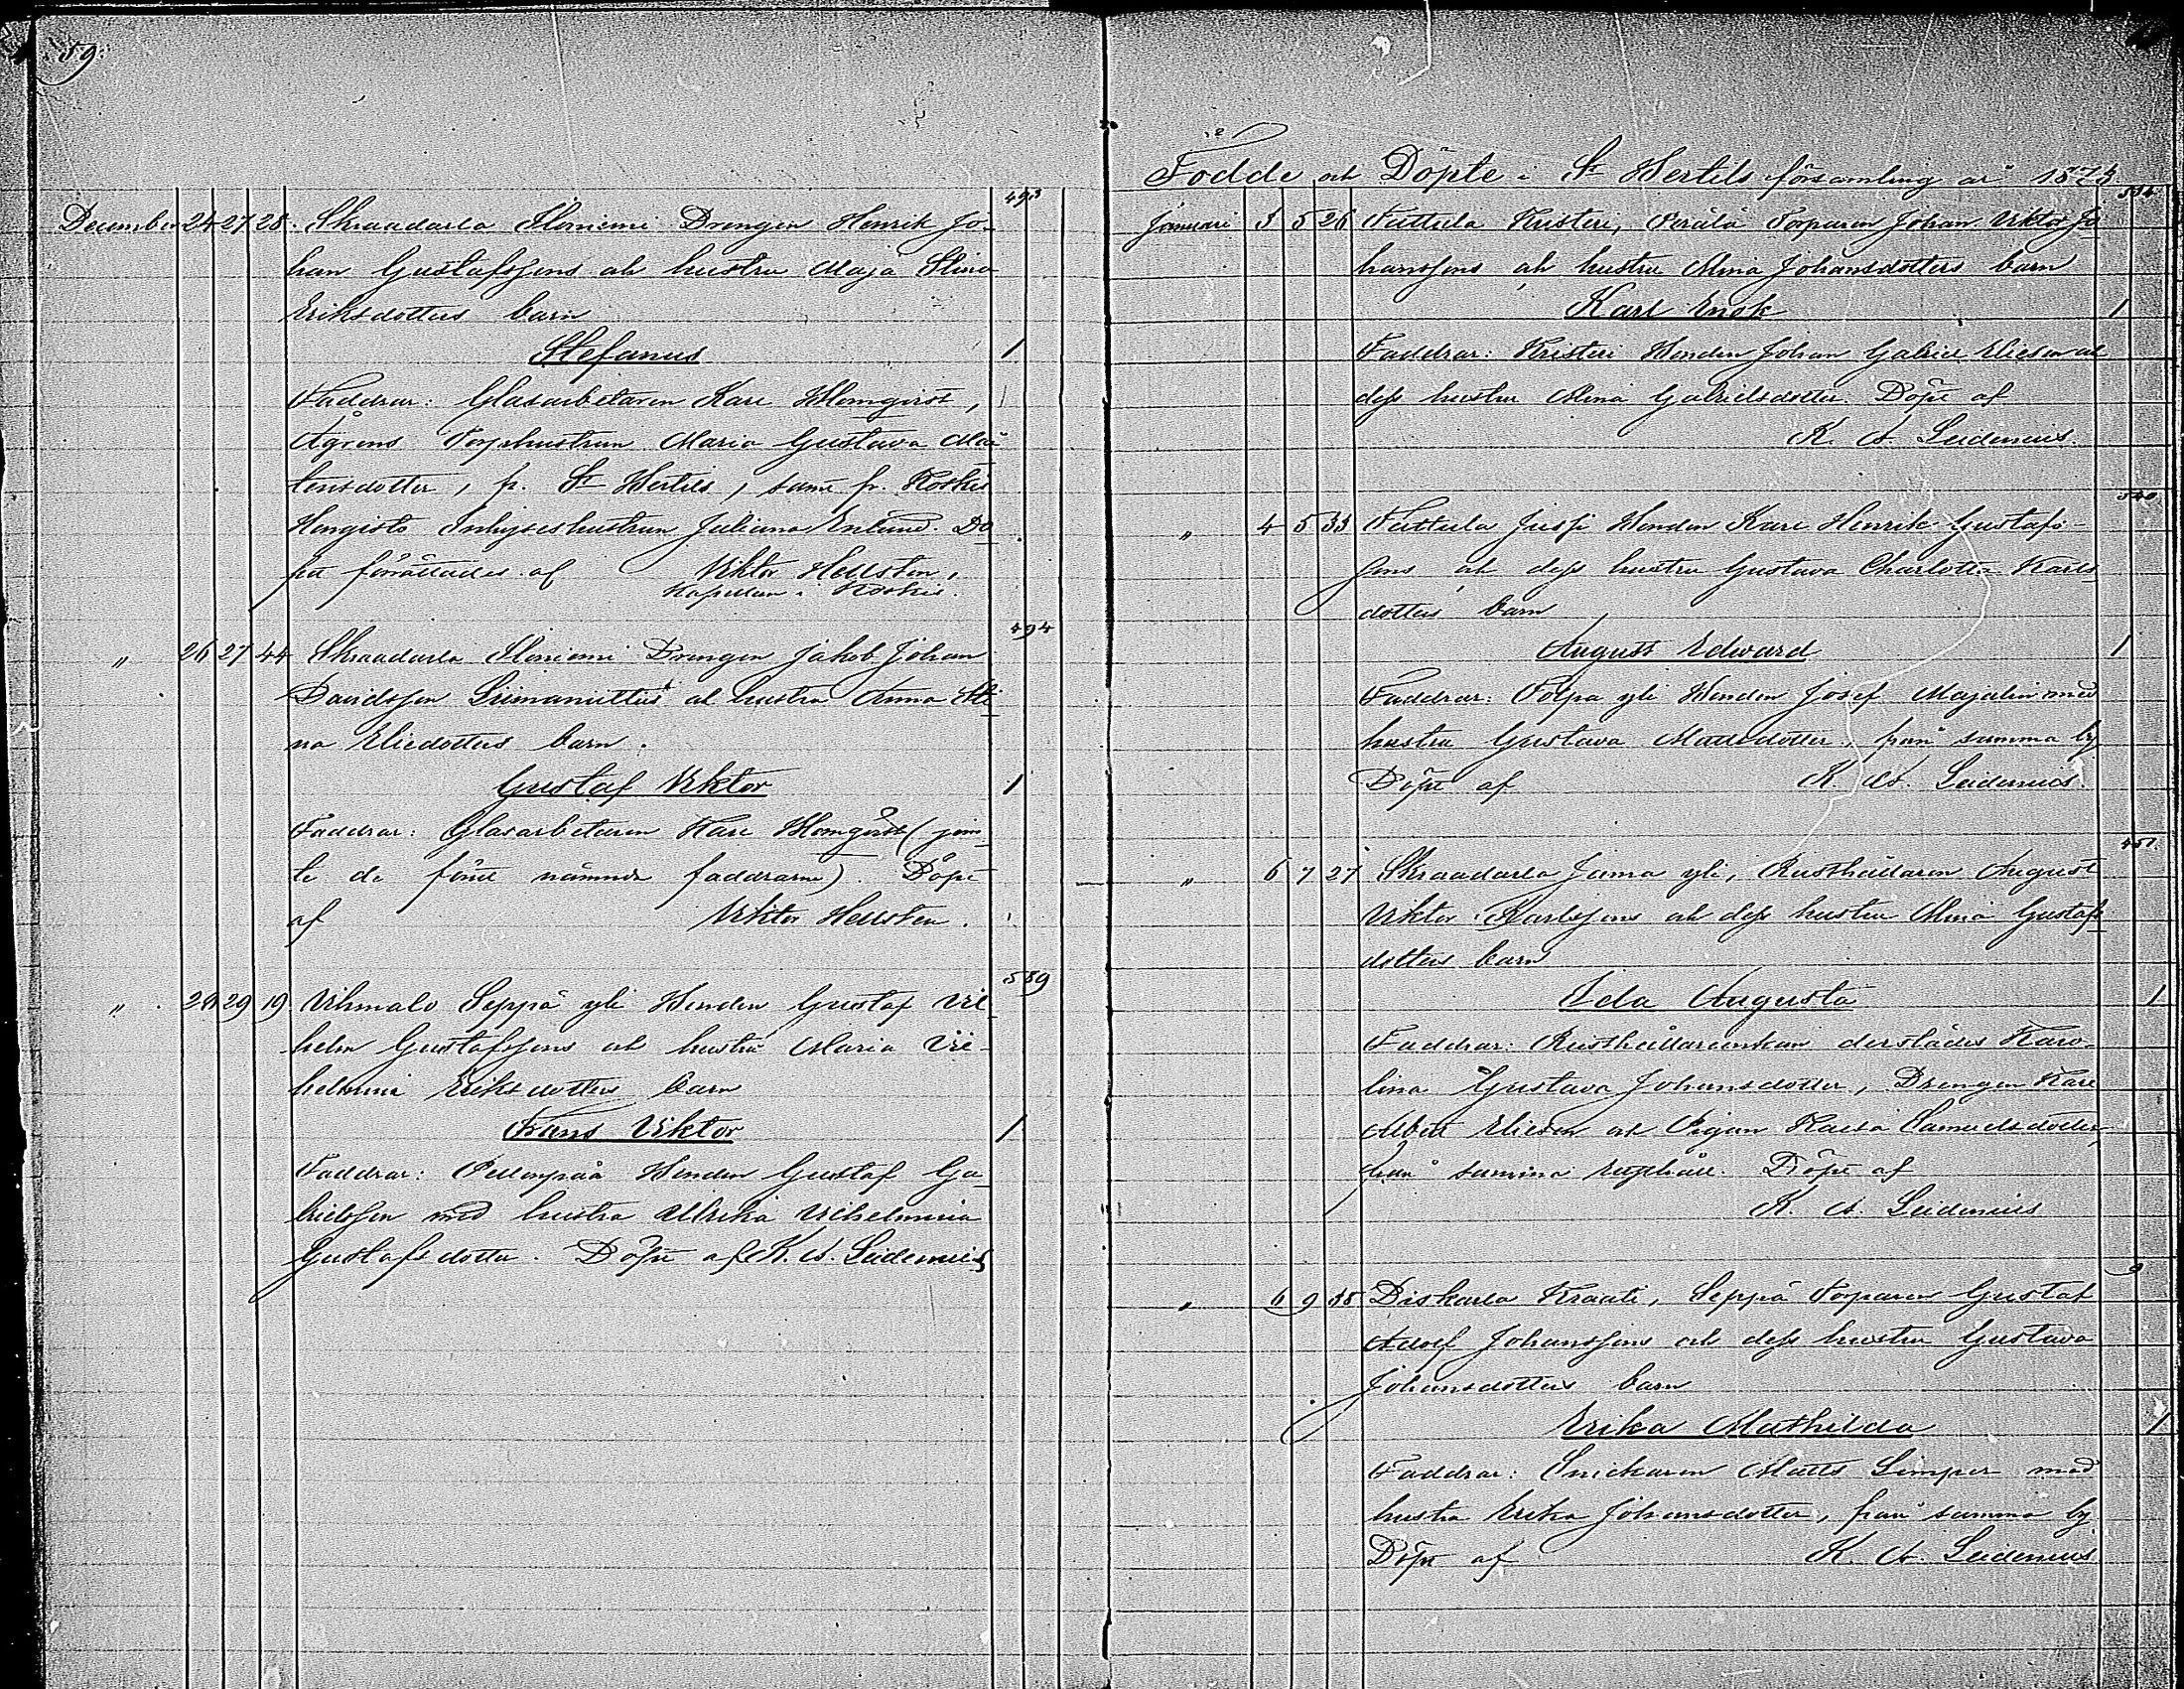 59.
493
December 24 27 28. Skraadarla Floniemi Drengen Henrik Jo-
han Gustafssons och hustru Maja Stina
Eriksdotters barn
Stefanus 1
Faddrar: Glasarbetaren Karl Blomqvist,
Ågrens Torphustrun Maria Gustava Mår-
tensdotter, fr. St Bertils, samt fr. Koskis
Hongisto Inhyseshustrun Juliana Enlund. Dö-
pet förrättades af Viktor Hellsten,
Kapellan i Koskis.
494
" 26 27 44 Skraadarla Floniemi Drengen Jakob Johan
Davidsson Liimanittus och hustru Anna Sti-
na Eliedotters barn.
Gustaf Viktor 1
Faddrar: Glasarbetaren Karl Blomqvist (jem-
te de förut nämnda faddrarne). Döpt
af Viktor Hellsten.
589
" 28 29 19 Vihmalo Seppä yli Bonden Gustaf Vil-
helm Gustafssons och hustru Maria Vil-
helmina Eriksdotters barn
Frans Viktor 1
Faddrar: Bonden Gustaf Ga-
brielsson med hustru Ulrika Vilhelmina
Gustafsdotter. Döpt af K. A. Leidenius
Födde och Döpte i St Bertils församling år 1875
534
Januari 3 5 26 Puttula Kristeri, Perälä Torparen Johan Viktor Jo-
hanssons och hustru Mina Johansdotters barn
Karl Enok 1
Faddrar: Kristeri Bonden Johan Gabriel Elieson och
dess hustru Mina Gabrielsdotter. Döpt af
K. A. Leidenius.
540
" 4 5 33 Puttula Jussi Bonden Karl Henrik Gustafs-
sons och dess hustru Gustava Charlotta Karls-
dotters barn
August Edward 1
Faddrar: Tolpa yli Bonden Josef Majalin med
hustru Gustava Mattsdotter, från samma by
Döpt af K. A. Leidenius.
451.
" 6 7 27 Skraadarla Juma yli, Rusthållaren August
Viktor Karlssons och dess hustru Mina Gustafs-
dotters barn
Ida Augusta 1
Faddrar: Rusthållareenkan derstädes Karo-
lina Gustava Johansdotter, Drengen Karl
Albert Elieson och Pigan Kaisa Samuelsdotter,
från samma rusthåll. Döpt af
K. A. Leidenius
9
" 6 9 38 Diskarla Kraati, Seppä Torparen Gustaf
Adolf Johanssons och dess hustru Gustava
Johansdotters barn
Erika Mathilda 1
Faddrar: Snickaren Matts Limper med
hustru Erika Johansdotter, från samma by.
Döpt af K. A. Leidenius